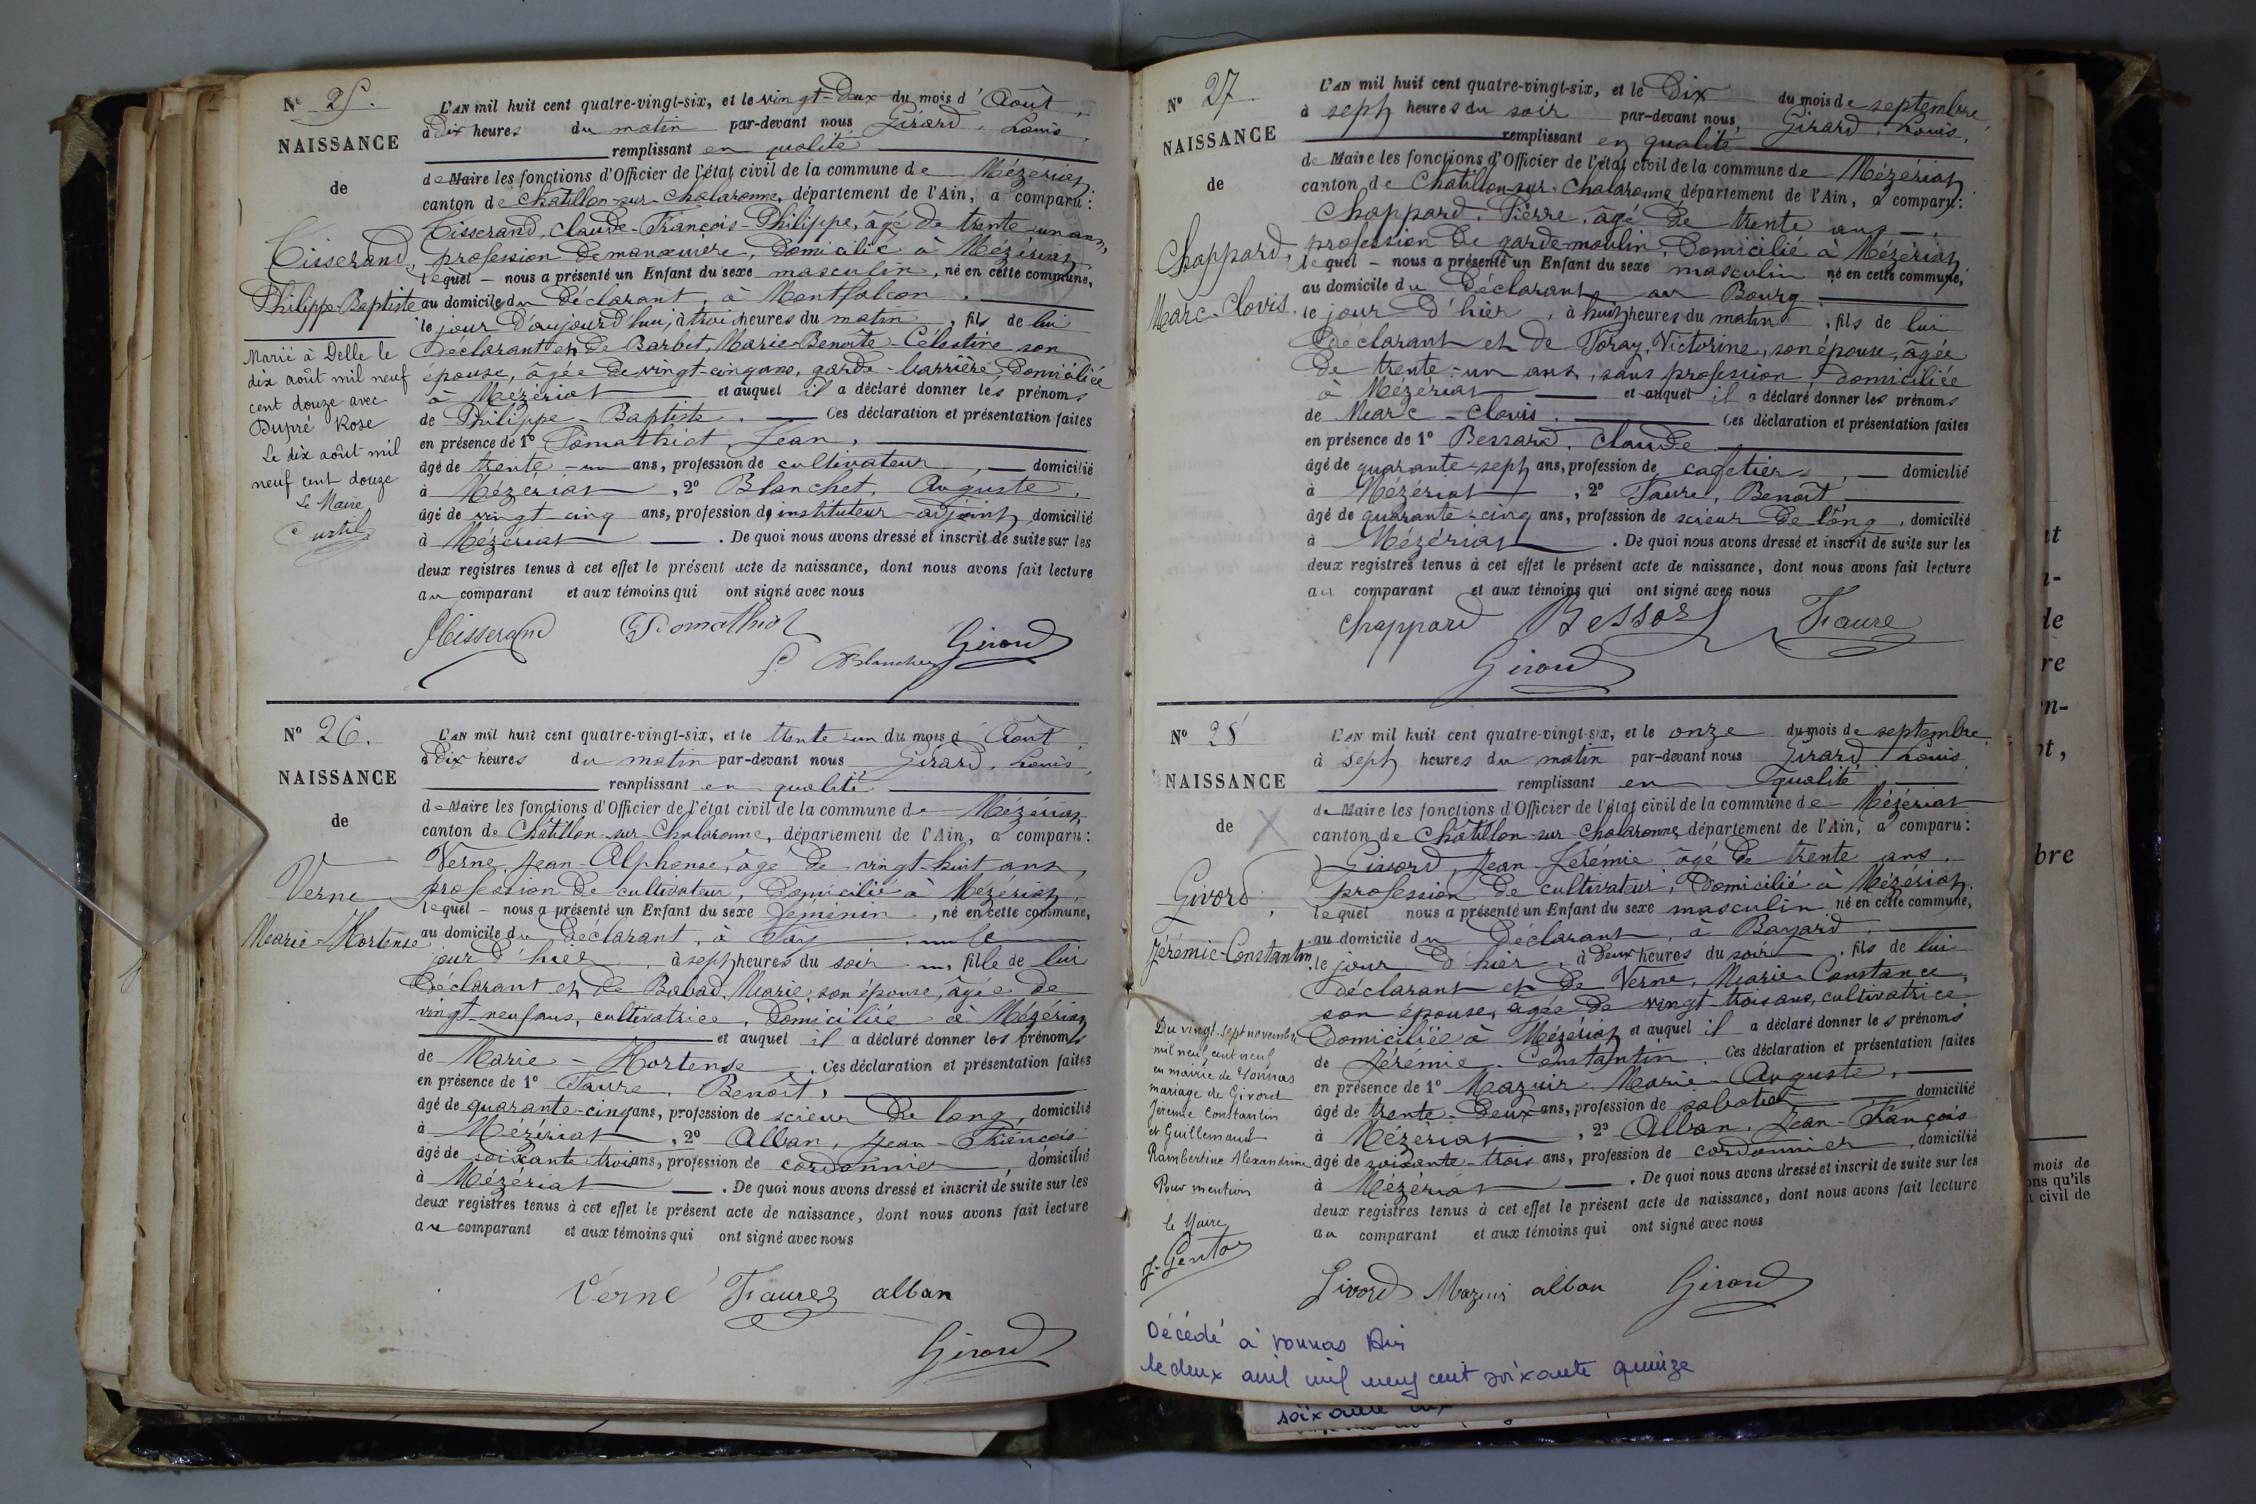 Nº 25.
NAISSANCE
de
Tisserand,
Philippe-Baptiste
Marié à Delle le
dix août mil neuf
cent douze avec
Dupré Rose
Le dix août mil
neuf cent douze
Le Maire
Curtil
L'AN mil huit cent quatre-vingt-six, et le vingt-deux du mois d'Août,
à Dix heures du matin par-devant nous Girard, Louis,
remplissant en qualité
de Maire les fonctions d'Officier de l'état civil de la commune de Mézériat,
canton de Châtillon-sur-Chalaronne, département de l'Ain, a comparu:
Tisserand, Claude-François-Philippe, âgé de trente-un ans,
profession de manœuvre, domicilié à Mézériat,
lequel nous a présenté un Enfant du sexe masculin, né en cette commune,
au domicile du déclarant, à Montfalcon,
le jour d'aujourd'hui, à trois heures du matin, fils de lui
déclarant et de Barbet, Marie-Benoîte-Célestine son
épouse, âgée de vingt-cinq ans, garde-barrière, domiciliée
à Mézériat et auquel il a déclaré donner les prénoms
de Philippe-Baptiste. Ces déclaration et présentation faites
en présence de 1º Pomathiot, Jean,
âgé de trente-un ans, profession de cultivateur, domicilié
à Mézériat, 2º Blanchet, Auguste,
âgé de vingt-cinq ans, profession de instituteur-adjoint, domicilié
à Mézériat. De quoi nous avons dressé et inscrit de suite sur les
deux registres tenus à cet effet le présent acte de naissance, dont nous avons fait lecture
au comparant et aux témoins qui ont signé avec nous
Tisserand Pomathiot
Blanchet Girard
Nº 26.
NAISSANCE
de
Verne
Marie-Hortense
L'AN mil huit cent quatre-vingt-six, et le trente-un du mois d'Août,
à Dix heures du matin par-devant nous Girard, Louis,
remplissant en qualité
de Maire les fonctions d'Officier de l'état civil de la commune de Mézériat,
canton de Châtillon-sur-Chalaronne, département de l'Ain, a comparu:
Verne, Jean-Alphonse, âgé de vingt-huit ans,
profession de cultivateur, domicilié à Mézériat,
lequel nous a présenté un Enfant du sexe féminin, né en cette commune,
au domicile du déclarant, à Fay, le
jour d'hier, à sept heures du soir, fille de lui
déclarant et de Babad, Marie, son épouse, âgée de
vingt-neuf ans, cultivatrice, domiciliée à Mézériat
et auquel il a déclaré donner les prénoms
de Marie-Hortense. Ces déclaration et présentation faites
en présence de 1º Faure, Benoît,
âgé de quarante-cinq ans, profession de scieur de long, domicilié
à Mézériat, 2º Alban, Jean-François
âgé de soixante-trois ans, profession de cordonnier, domicilié
à Mézériat. De quoi nous avons dressé et inscrit de suite sur les
deux registres tenus à cet effet le présent acte de naissance, dont nous avons fait lecture
au comparant et aux témoins qui ont signé avec nous
Verne Faure alban
Girard
Nº 27
NAISSANCE
de
Chappard,
Marc-Clovis.
L'AN mil huit cent quatre-vingt-six, et le Dix du mois de septembre,
à sept heures du soir par-devant nous, Girard, Louis,
remplissant en qualité
de Maire les fonctions d'Officier de l'état civil de la commune de Mézériat,
canton de Châtillon-sur-Chalaronne, département de l'Ain, a comparu:
Chappard, Pierre, âgé de trente ans,
profession de garde-moulin, domicilié à Mézériat,
lequel nous a présenté un Enfant du sexe masculin né en cette commune,
au domicile du déclarant au Bourg
le jour d'hier, à huit heures du matin, fils de lui
déclarant et de Foray, Victorine, son épouse, âgée
de trente-un ans, sans profession, domiciliée
à Mézériat et auquel il a déclaré donner les prénoms
de Marc-Clovis. Ces déclaration et présentation faites
en présence de 1º Bessard, Claude
âgé de quarante-sept ans, profession de cafetier, domicilié
à Mézériat, 2º Faure, Benoît,
âgé de quarante-cinq ans, profession de scieur de long, domicilié
à Mézériat. De quoi nous avons dressé et inscrit de suite sur les
deux registres tenus à cet effet le présent acte de naissance, dont nous avons fait lecture
au comparant et aux témoins qui ont signé avec nous
Chappard Bessard Faure
Girard
Nº 28
NAISSANCE
de
Givord,
Jérémie-Constantin
Du vingt-sept novembre
mil neuf cent neuf
en mairie de Vonnas
mariage de Givord
Jérémie Constantin
et Guillemaud
Rambertine Alexandrine
Pour mention
le Maire
L'AN mil huit cent quatre-vingt-six, et le onze du mois de septembre
à sept heures du matin par-devant nous Girard, Louis,
remplissant en qualité
de Maire les fonctions d'Officier de l'état civil de la commune de Mézériat
canton de Châtillon-sur-Chalaronne, département de l'Ain, a comparu:
Givord, Jean-Jérémie âgé de trente ans,
profession de cultivateur, domicilié à Mézériat,
lequel nous a présenté un Enfant du sexe masculin né en cette commune,
au domicile du déclarant, à Bayard,
le jour d'hier, à deux heures du soir, fils de lui
déclarant et de Verne, Marie-Constance,
son épouse, âgée de vingt-trois ans, cultivatrice,
domiciliée à Mézériat et auquel il a déclaré donner les prénoms
de Jérémie-Constantin. Ces déclaration et présentation faites
en présence de 1º Mazuir, Marie-Auguste,
âgé de trente-deux ans, profession de sabotier domicilié
à Mézériat, 2º Alban, Jean-François
âgé de soixante-trois ans, profession de cordonnier, domicilié
à Mézériat. De quoi nous avons dressé et inscrit de suite sur les
deux registres tenus à cet effet le présent acte de naissance, dont nous avons fait lecture
au comparant et aux témoins qui ont signé avec nous
Givord Mazuir alban Girard
Décédé à Vonnas Ain
le deux avril mil neuf cent soixante quinze